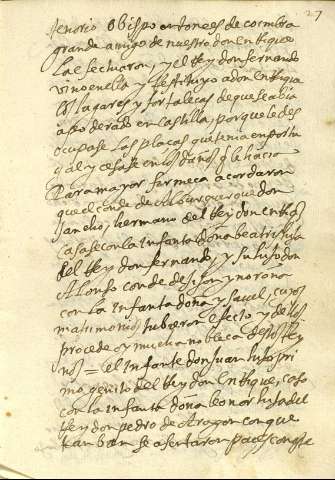 27
tenorio Obispo entonces de coimbra
grande amigo de nuestro don enrique
La efectuaron, y el Rey don fernando
vino en ella y Restituyo a don enrique
los lugares y fortalecas de que se abia
apoderado en castilla, porque se des
ocupase las placas que tenia en portu
gal y cesase en los daños q le hacia
Para mayor firmeca acordaron
que el conde de Alburquerque don
sancho, hermano del Rey don enriq
casase con la infanta doña beatriz hija
del Rey don fernando, y su hijo don
Alonso conde de jijon y norona
con la Infanta doña ysavel, cuyos
matrimonios tubieron efecto y dellos
procede oy mucha nobleca destos Rey
nos = el infante don juan hijo pri
mogenito del Rey don enrique, caso
con la infanta doña leonor hija del
Rey don pedro de Aragon con que
tanbien se asentaron paces con este